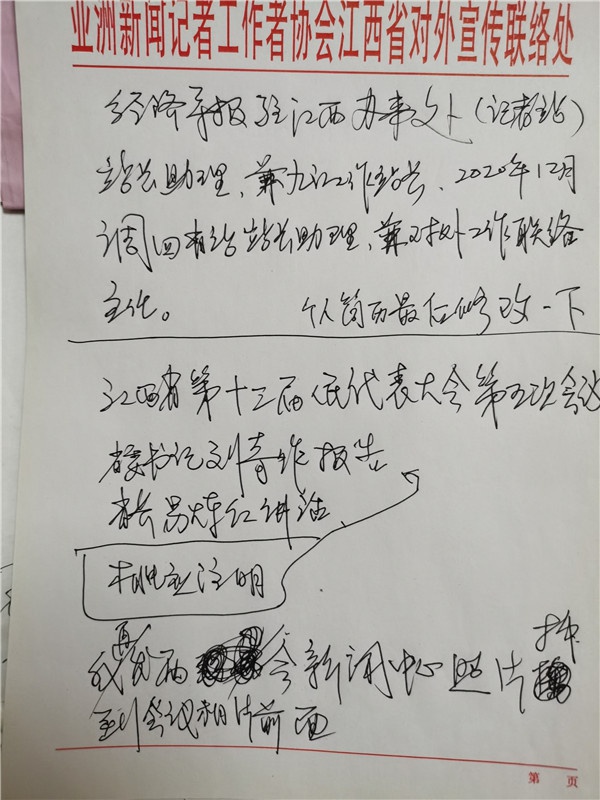 亚洲新闻记者工作者协会江西省对外宣传联络处
经济导报驻江西办事处(记者站)
站长助理、兼九江工作站长、2020年12月
调四省站站长助理,兼对外工作联络
主任。 个人简历最后修改一下
江西省第十三届人民代表大会第五次会议
省委书记刘奇作报告
省长易炼红讲话
相应注明
我再发两会新闻中心照片排
到会议相片前面
第 页